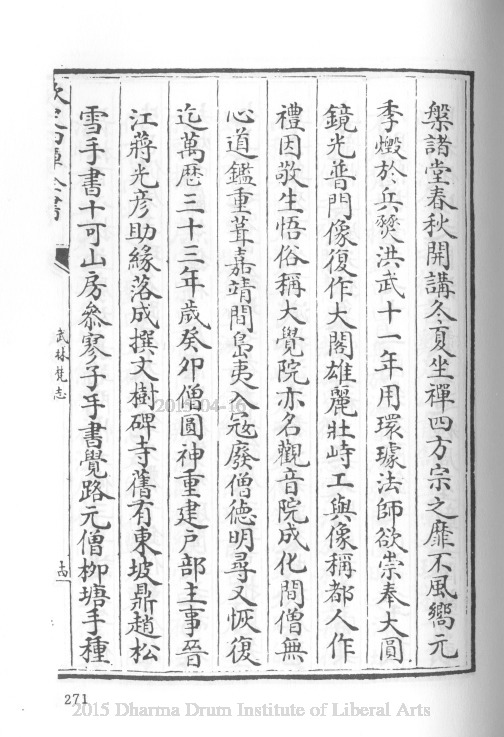 槃諸堂春秋開講冬夏坐禪四方宗之靡不風嚮元
季燬於兵燹洪武十一年用環璩法師欲崇奉大圓
鏡光普門像復作大閣雄麗壯峙工與像稱都人作
禮因敬生悟俗稱大覺院亦名觀音院成化間僧無
心道鑑重葺嘉靖間島夷入寇廢僧德明尋又恢復
迄萬厯三十三年歲癸卯僧圓神重建戸部主事晉
江蔣光彥助緣落成撰文樹碑寺舊有東坡鼎趙松
雪手書十可山房叅寥子手書覺路元僧柳塘手種
欽定四庫全書
武林梵志
2015-04-16
271
2015 Dharma Drum Institute of Liberal Arts